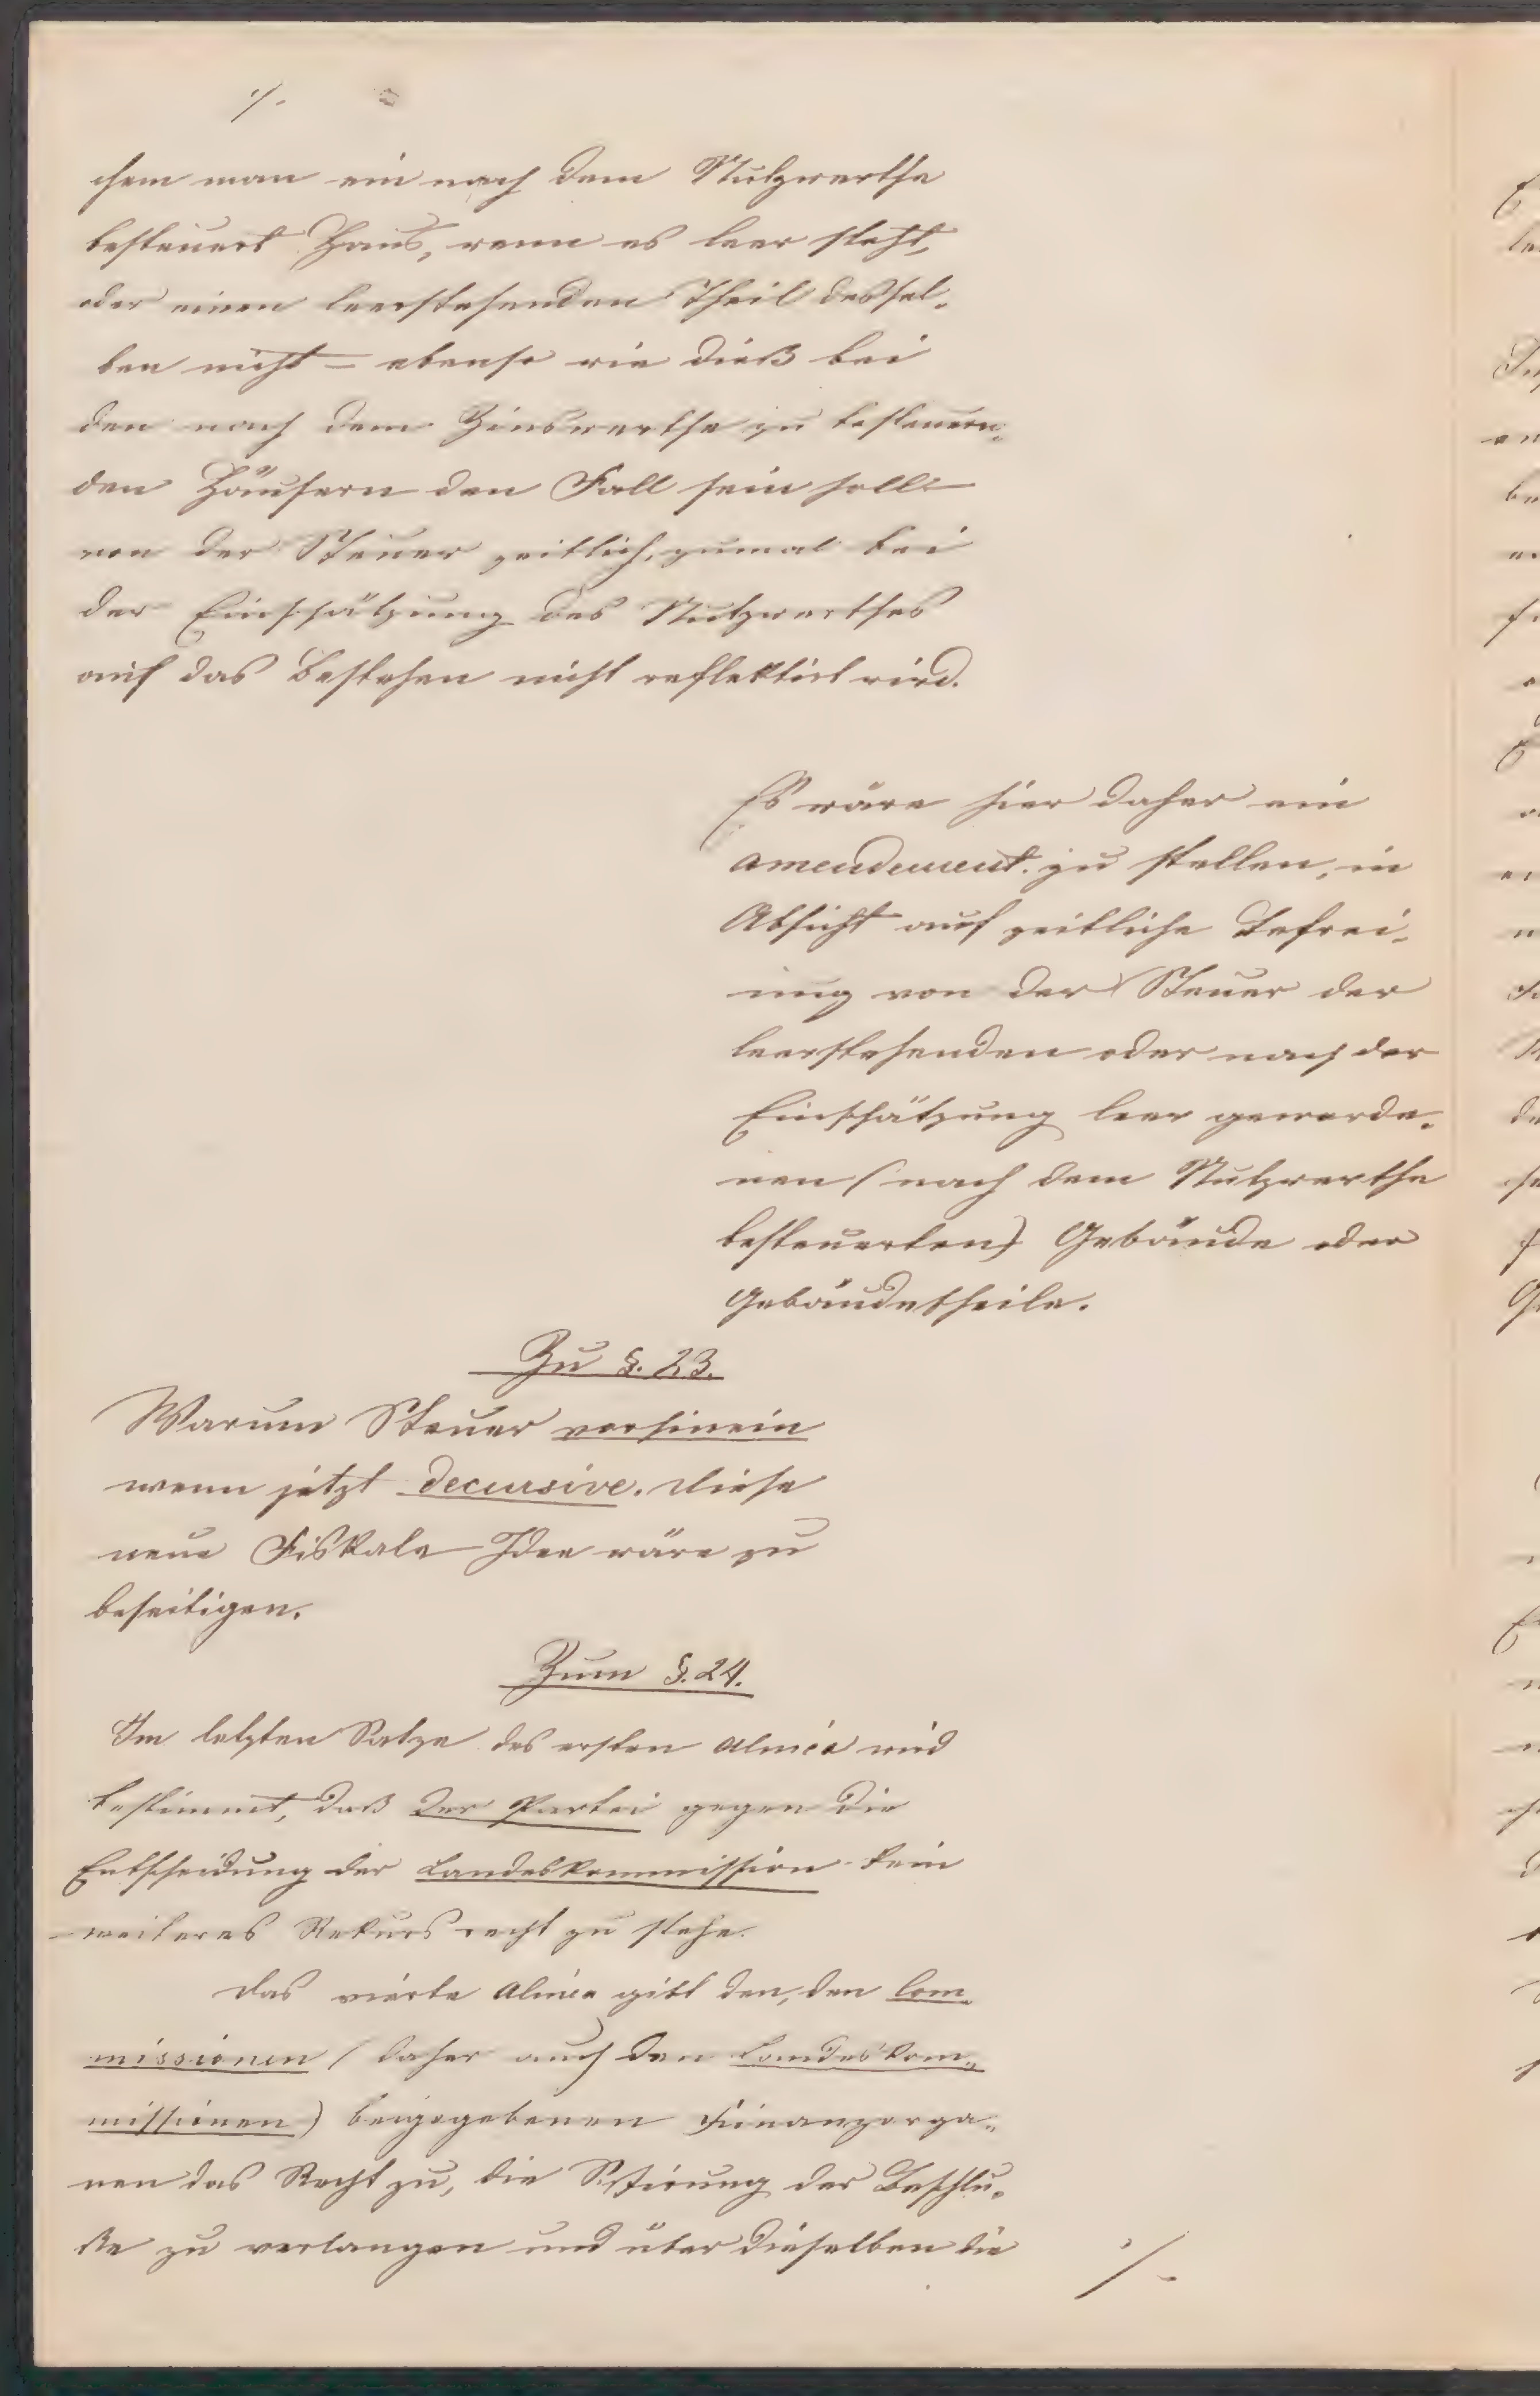 ./.
chem man ein nach dem Nutzwerthe
besteuert Haus, wenn es leer steht,
oder einen leerstehenden Theil dessel-
ben nicht – ebenso wie dieß bei
den nach dem Zinswerthe zu besteuern-
den Häusern den Fall sein soll –
von der Steuer zeitlich, zumal bei
der Einschätzung des Nutzwerthes
auf das Bestehen nicht reflektirt wird.
Es wäre hier daher ein
amendement zu stellen, in
Absicht auf zeitliche Befrei-
ung von der Steuer der
leerstehenden oder nach der
Einschätzung leer geworde-
nen (nach dem Nutzwerthe
besteuerten) Gebäude oder
Gebäudetheile.
Zu §. 23.
Warum Steuer vorhinein
wenn jetzt decursive. Diese
neue Fiskale Idee wäre zu
beseitigen.
Zum §. 24.
Im letzten Satze des ersten alinea wird
bestimmt, daß der Partei gegen die
Entscheidung der Landeskommission kein
weiteres Rekursrecht zu stehe.
Das vierte alinea gibt den, den Com-
missionen (daher auch den Landeskom-
missionen) beigegebenen Finanzorga-
nen das Recht zu, die Sistirung der Beschlü-
ße zu verlangen und über dieselben die
./.